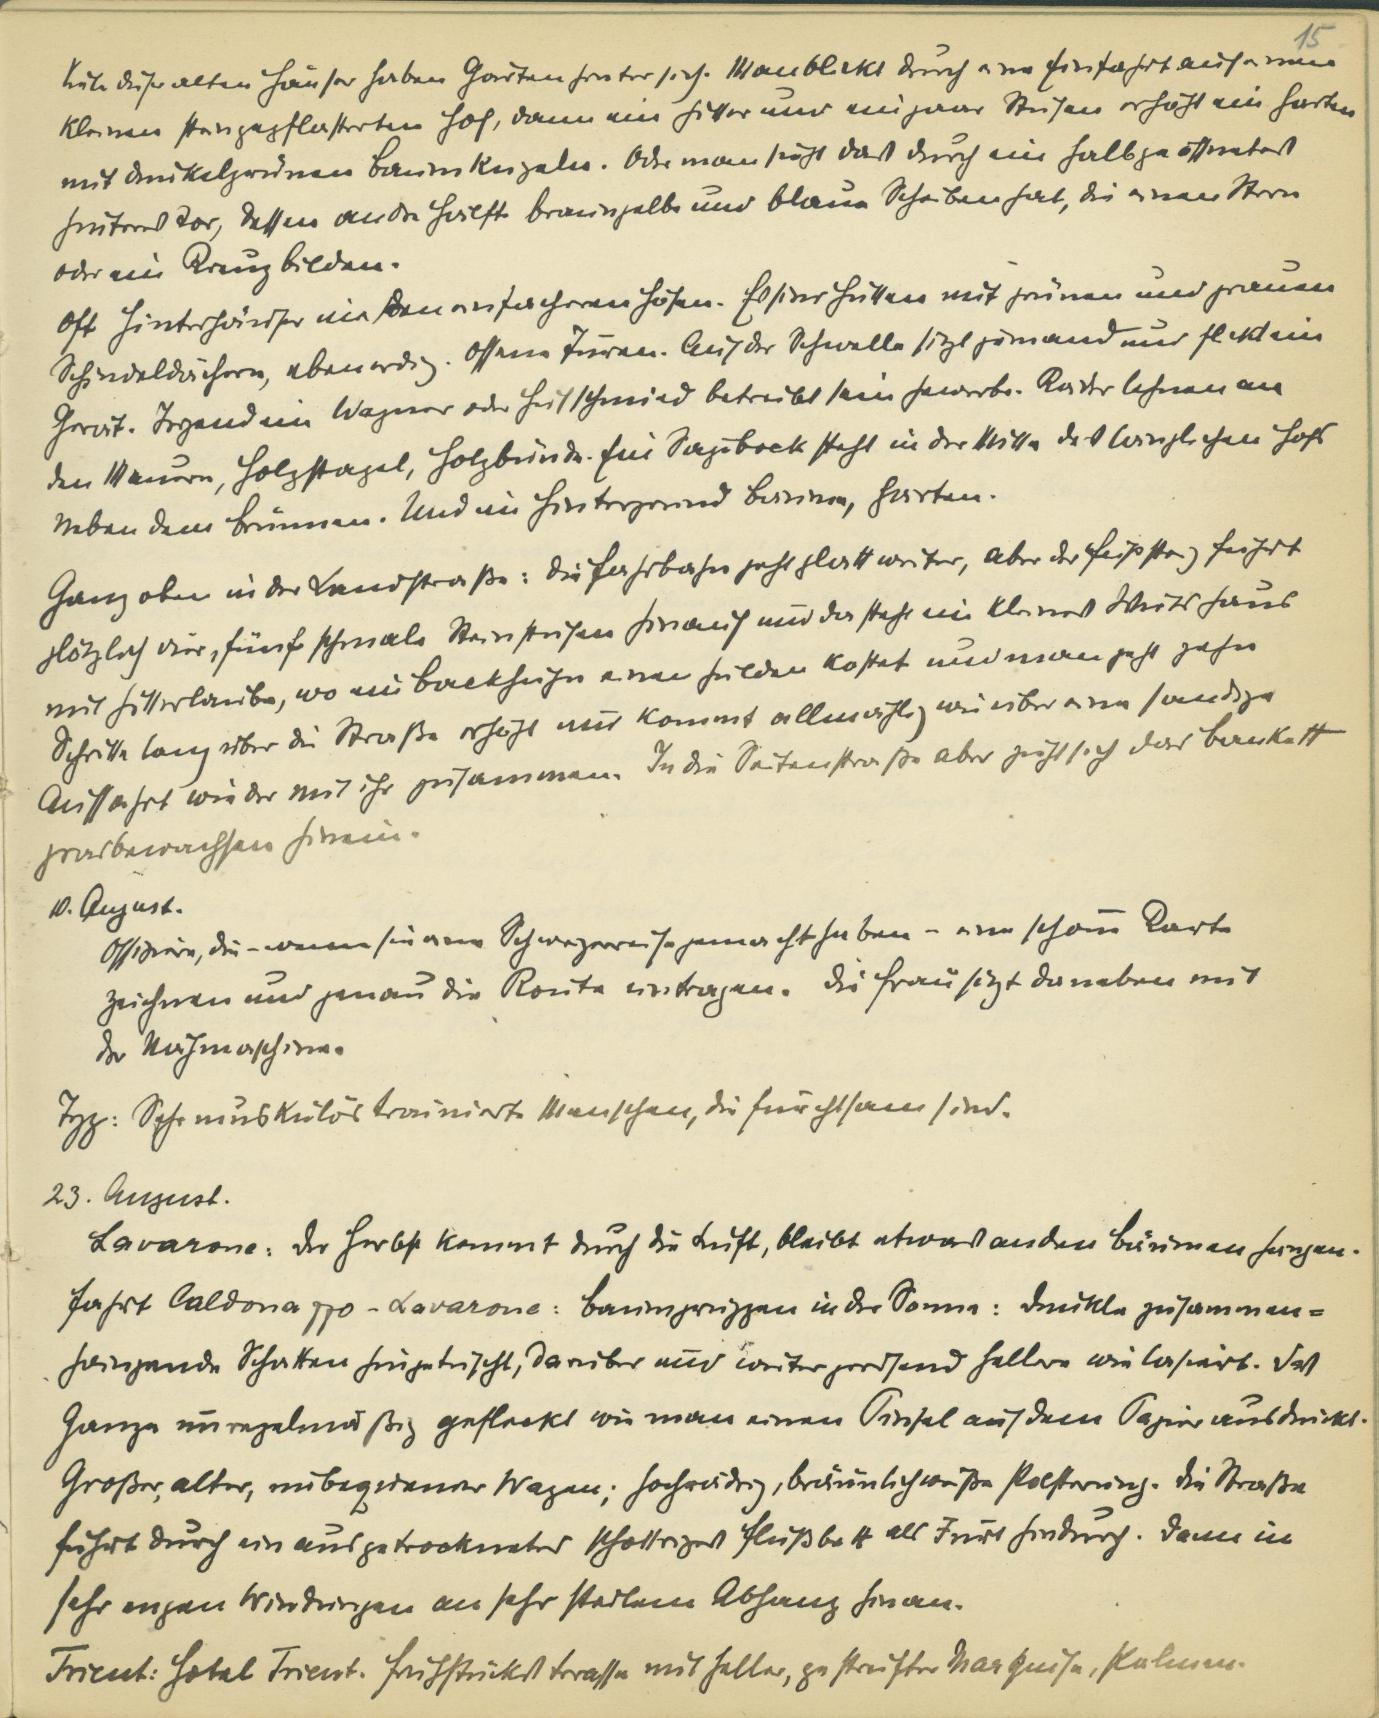 15
Viele dieser alten Häuser haben Gärten hinter sich. Man blickt durch eine Einfahrt auf einen
kleinen steingepflasterten Hof, dann ein Gitter und ein paar Stufen erhöht ein Garten
mit dunkelgrünen Baumkugeln. Oder man sieht das durch ein halbgeöffnetes
hinteres Tor, dessen andre Hälfte braungelbe und blaue Scheiben hat, die einen Stern
oder ein Kreuz bilden.
Oft Hinterhäuser in den einfacheren Höfen. Es sind Hütten mit grünen und grauen
Schindeldächern, ebenerdig. Offene Türen. Auf der Schwelle sitzt jemand und flickt ein
Gerät. Irgend ein Wagner oder Hufschmied betreibt sein Gewerbe. Räder lehnen an
den Mauern, Holzstapel, Holzbünde. Ein Sägebock steht in der Mitte des länglichen Hofs
neben dem Brunnen. Und im Hintergrund Bäume, Garten.
Ganz oben in der Landstraße: die Fahrbahn geht glatt weiter, aber der Fußsteig führt
plötzlich vier, fünf schmale Steinstufen hinauf und da steht ein kleines Wirtshaus
mit Gitterlaube, wo ein Backhuhn einen Gulden kostet und man geht zehn
Schritte lang über die Straße erhöht und kommt allmählig wie über eine sandige
Auffahrt wieder mit ihr zusammen. In die Seitenstraße aber zieht sich das Bankett
grasbewachsen hinein.
10. August.
Offiziere, die – wenn sie eine Schweizerreise gemacht haben – eine schöne Karte
zeichnen und genau die Route eintragen. Die Frau sitzt daneben mit
der Nähmaschine.
Typ: Sehr muskulös trainierte Menschen, die furchtsam sind.
23. August.
Lavarone: Der Herbst kommt durch die Luft, bleibt etwas an den Bäumen hängen.
Fahrt Caldonazzo – Lavarone: Baumgruppen in der Sonne: dunkle zusammen=
hängende Schatten hingetuscht, darüber und weitergreifend hellere wie lasiert. Das
Ganze unregelmäßig gefleckt wie man einen Pinsel auf dem Papier ausdrückt.
Großer, alter, unbequemer Wagen; hochrädrig, bräunlichweiße Polsterung. Die Straße
führt durch ein ausgetrocknetes schottriges Flußbett als Furt hindurch. Dann in
sehr engen Windungen an sehr steilem Abhang hinan.
Trient: Hotel Trient. Frühstücksterasse mit heller, gestreifter Marquise, Palmen.